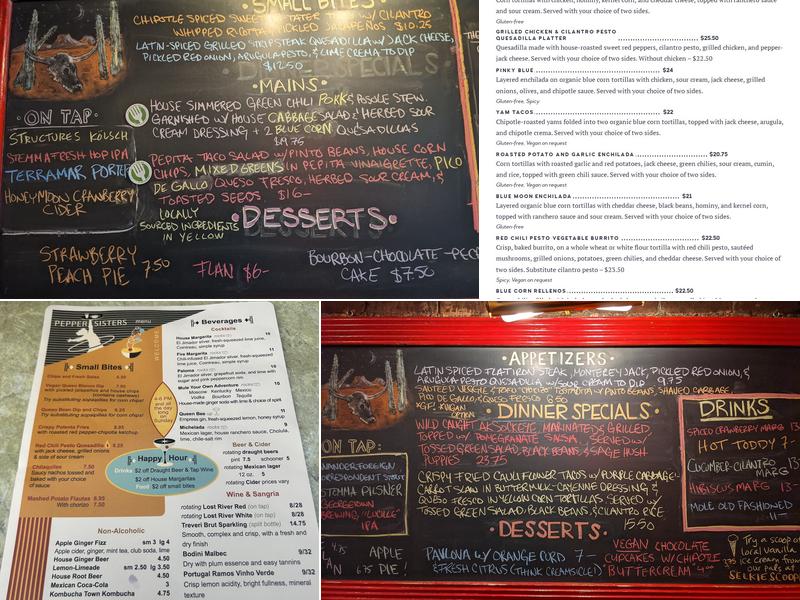 SMALL BITES
CHIPOTLE SPICED SWEET TATER W/ CILANTRO
WHIPPED RICOTTA PICKLED JALAPEÑOS $10.25
LATIN-SPICED GRILLED STRIP STEAK QUESADILLA W/ JACK CHEESE,
PICKLED RED ONION, ARUGULA PESTO, & LIME CREMA TO DIP
$12.50
·MAINS·
HOUSE SIMMERED GREEN CHILI PORK & POSOLE STEW.
GARNISHED W/ HOUSE CABBAGE SALAD & HERBED SOUR
CREAM DRESSING + 2 BLUE CORN QUESADILLAS
$19.75
PEPITA TACO SALAD W/ PINTO BEANS, HOUSE CORN
CHIPS, MIXED GREENS IN PEPITA VINAIGRETTE, PICO
DE GALLO, QUESO FRESCO, HERBED SOUR CREAM, &
TOASTED SEEDS $16-
·ON TAP·
STRUCTURES KÖLSCH
STEMMA FRESH HOP IPA
TERRAMAR PORTER
HONEYMOON CRANBERRY
CIDER
LOCALLY
SOURCED INGREDIENTS
IN YELLOW
·DESSERTS·
STRAWBERRY
PEACH PIE 7.50
FLAN $6-
BOURBON-CHOCOLATE-PEC
CAKE $7.50
and sour cream. Served with your choice of two sides.
Gluten-free
GRILLED CHICKEN & CILANTRO PESTO
QUESADILLA PLATTER $25.50
Quesadilla made with house-roasted sweet red peppers, cilantro pesto, grilled chicken, and pepper-
jack cheese. Served with your choice of two sides. Without chicken – $22.50
PINKY BLUE $24
Layered enchilada on organic blue corn tortillas with chicken, sour cream, jack cheese, grilled
onions, olives, and chipotle sauce. Served with your choice of two sides.
Gluten-free, Spicy
YAM TACOS $22
Chipotle-roasted yams folded into two organic blue corn tortillas, topped with jack cheese, arugula,
and chipotle crema. Served with your choice of two sides.
Gluten-free, Vegan on request
ROASTED POTATO AND GARLIC ENCHILADA $20.75
Corn tortillas with roasted garlic and red potatoes, jack cheese, green chilies, sour cream, cumin,
and rice, topped with green chili sauce. Served with your choice of two sides.
Gluten-free, Vegan on request
BLUE MOON ENCHILADA $21
Layered organic blue corn tortillas with cheddar cheese, black beans, hominy, and kernel corn,
topped with ranchero sauce and sour cream. Served with your choice of two sides.
Gluten-free
RED CHILI PESTO VEGETABLE BURRITO $22.50
Crisp, baked burrito, on a whole wheat or white flour tortilla with red chili pesto, sautéed
mushrooms, grilled onions, potatoes, green chilies, and cheddar cheese. Served with your choice of
two sides. Substitute cilantro pesto – $23.50
Spicy, Vegan on request
BLUE CORN RELLENOS $22.50
PEPPER SISTERS menu
WELCOME
Small Bites
Chips and Fresh Salsa
Vegan Queso Blanco Dip
with pickled jalapeños and house chips
(contains cashews)
Try substituting vegetables for corn chips!
Queso Bean Dip and Chips 8.25
Try substituting vegetables for corn chips!
Crispy Potenta Fries 8.95
with roasted red pepper-ketchup
Red Chili Pesto Quesadilla
with jack cheese, grilled onions
& side of sour cream
Chilaquiles 7.50
Saucy nachos tossed and
baked with cheese and
cotija
Mashed Potato Flautas 6.95
With chorizo 7.50
Happy Hour
Drinks $2 off Draught Beer & Tap Wine
$2 off House Margaritas
Food $2 off small bites
Non-Alcoholic
Apple Ginger Fizz sm 3 lg 4
Apple cider, ginger, mint tea, club soda, lime
House Ginger Beer 4.50
Lemon-Limeade sm 2.50 lg 3.50
House Root Beer 4.50
Mexican Coca-Cola 3
Kombucha Town Kombucha 4.75
Beverages
Cocktails
House Margarita rocks 10
El Jimador silver, fresh-squeezed lime juice,
Cointreau, simple syrup
Fire Margarita rocks 11
Chili-infused El Jimador silver, fresh-squeezed
lime juice, Cointreau, simple syrup
Paloma rocks 10
El Jimador silver, grapefruit soda, and lime with
sugar and pink peppercorn rim
Mule Your Own Adventure rocks 10
Moscow Kentucky Mexico
Vodka Bourbon Tequila
House-made ginger soda with lime & choice of spirit
Queen Bee 11
Empress gin, fresh-squeezed lemon, honey syrup
Michelada 9
Mexican lager, house ranchero sauce, Cholula,
lime, chile-salt rim
Beer & Cider
rotating draught beers
pint 7.5 schooner 5
rotating Mexican lager
12 oz. 5
rotating Cider prices vary
Wine & Sangria
rotating Lost River Red (on tap) 8/28
rotating Lost River White (on tap) 8/28
Treveri Brut Sparkling (split bottle) 14.75
Smooth, complex and crisp, with a fresh and
dry finish
Bodini Malbec 9/32
Dry with plum essence and easy tannins
Portugal Ramos Vinho Verde 9/32
Crisp lemon acidity, bright fullness, mineral
texture
·APPETIZERS·
LATIN SPICED FLATIRON STEAK, MONTEREY JACK, PICKLED RED ONION, &
ARUGULA PESTO QUESADILLA W/ SOUR CREAM TO DIP 9.75
PICO DE GALLO, & QUESO FRESCO 8.50
·DINNER SPECIALS·
WILD CAUGHT AK SOCKEYE, MARINATED & GRILLED
TOPPED W/ POMEGRANATE SALSA. SERVED W/
TOSSED GREEN SALAD, BLACK BEANS, & SAGE HUSH
PUPPIES 23.75
CRISPY FRIED CAULIFLOWER TACOS W/ PURPLE CABBAGE-
CARROT SLAW IN BUTTERMILK-CAYENNE DRESSING &
QUESO FRESCO IN YELLOW CORN TORTILLAS. SERVED W/
TOSSED GREEN SALAD, BLACK BEANS, & CILANTRO RICE
15.50
DRINKS
SPICED CRANBERRY MARG 13
HOT TODDY 7-
CUCUMBER-CILANTRO
MARG 13-
HIBISCUS MARG 13-
MOLE OLD FASHIONED
11-
ON TAP
STEMMA PILSNER
GEORGETOWN
BREWING "LUCILLE"
IPA
·DESSERTS·
4.75
APPLE
6.75 PIE!
PAVLOVA W/ ORANGE CURD 7-
& FRESH CITRUS (THINK CREAMSICLE!)
VEGAN CHOCOLATE
CUPCAKES W/ CHIPOTLE
BUTTERCREAM
Try a scoop of
local Vanilla
ice cream from
our pals at
SELKIE SCOOP